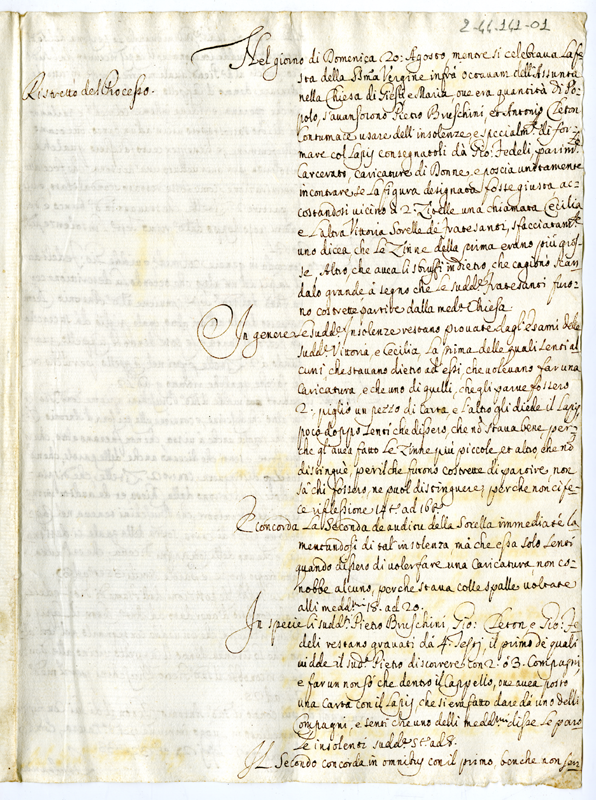 2-44-141-01
Ristretto del Processo.
Nel giorno di Domenica 20: Agosto, mentre si celebrava la fe
sta della SSma Vergine infra octavam dell'Assunta
nella Chiesa di Giesù e Maria, ove era quantità di Po
polo, s'avanzorono Pietro Bruschini, et Antonio Cleton
Contumace usare dell'insolenze, e specialmte di for
mare col Lapis consegnatoli dà Gio: Fedeli, parimte
Carcerato, caricature di Donne, e poscia unitamente
incontrare se la figura designata fosse giusta ac
costandosi vicino à 2 Zitelle una chiamata Cecilia
e l'altra Vittoria Sorelle de Fratesanti, sfacciatamte
uno dicea che le Zinne della prima erano più gros
se, Altro che avea li sbuffi indietro, che cagionò scan
dalo grande à segno che le sudde Fratesanti furo
no costrette partire dalla meda Chiesa.
In genere le sudde Insolenze restano provate dagl'esami delle
sudde Vittoria, e Cecilia, La prima delle quali sentì al
cuni che stavano dietro ad essi, che volevano far una
Caricatura, e che uno di quelli, che gli parve fossero
2: pigliò un pezzo di Carta, e l'altro gli diede il Lapis
poco doppo sentì che dissero, che nò stava bene, per
che gl'avea fatto le Zinne più piccole, et altro che nò
distinguè, per il che furono costrette di partire, non
sà chi fossero, ne puol distinguere, perche non ci fe
ce riflessione 14 to ad 16.
E concorda La Seconda de auditu della Sorella immediaté la
mentandosi di tal' insolenza mà che essa solo sentì
quando dissero di voler fare una Caricatura non co
nobbe alcuno, perche stava colle spalle voltate
alli medmi 18. ad 20.
In specie li sudi Pietro Bruschini, Gio: Cleton e Gio: Fe
deli restano gravati dà 4. Testj, il primo de quali
vidde il sudo Pietro discorrere con 2. ò 3. Compagni,
e far un non sò che dentro il Cappello, ove avea posto
una Carta con il Lapis, che si era fatto dare dà uno delli
Compagni, e sentì che uno delli medmi disse le paro
le insolenti sudde 5 to ad 8.
Il Secondo concorda in omnibus con il primo, benche non sen